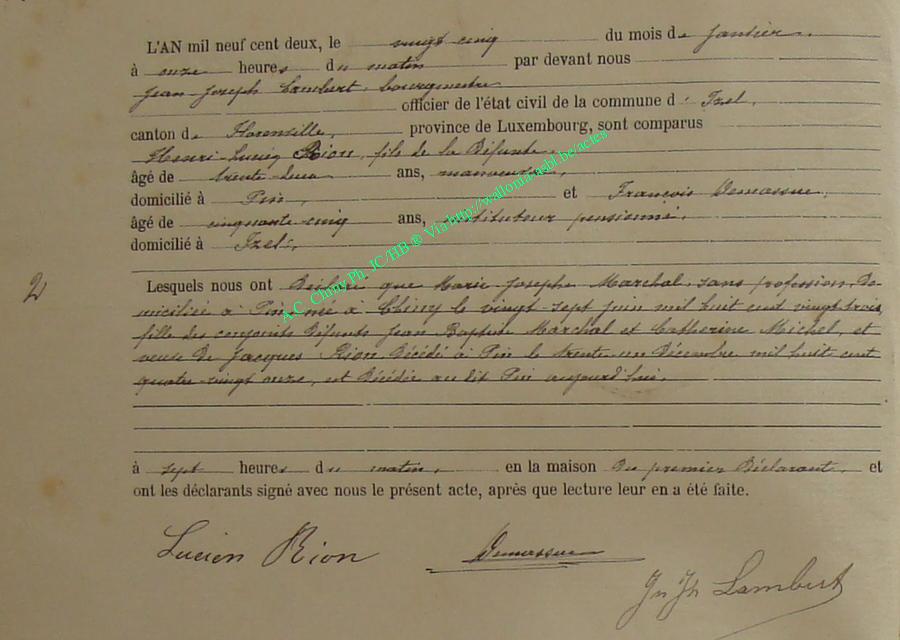 L'AN mil neuf cent deux, le vingt cinq du mois de Janvier.
à onze heures du matin par devant nous
Jean-Joseph Lambert, bourgmestre
officier de l'état civil de la commune d' Izel,
canton de Florenville, province de Luxembourg, sont comparus
Henri-Lucien Rion, fils de la Défunte,
âgé de trente-deux ans, manoeuvre,
domicilié à Pin, et François Demassue,
âgé de cinquante-cinq ans, instituteur pensionné,
domicilié à Izel,
2
Lesquels nous ont déclaré que Marie-Josephe Marchal, sans profession, do-
miciliée à Pin, né à Chiny le vingt-sept juin mil huit cent vingt-trois,
fille des conjoints défunts Jean Baptiste Marchal et Catherine Michel, et
veuve de Jacques Rion décédé à Pin le trente-un Décembre mil huit cent
quatre-vingt onze, est décédée au dit Pin aujourd'hui,
à sept heures du matin, en la maison du premier déclarant, et
ont les déclarants signé avec nous le présent acte, après que lecture leur en a été faite.
Lucien Rion Demassue
Jn Jh Lambert
A.C. Chiny Ph. JC/HB @ Via http://wallonia-asbl.be/actes